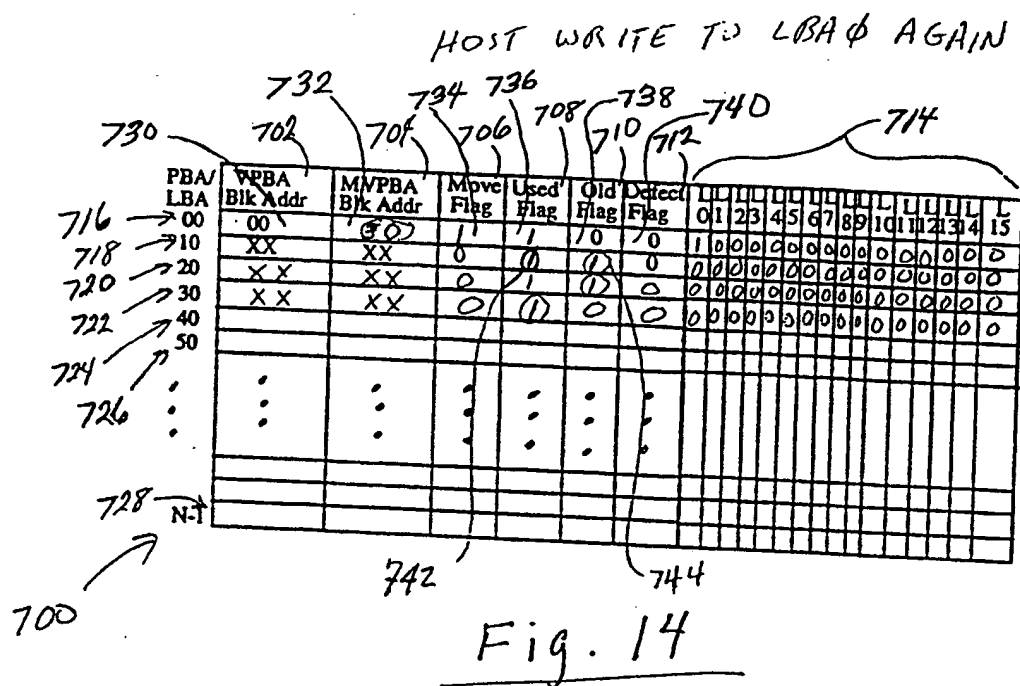 HOST WRITE TO LBAϕ AGAIN
732 734 736 708 738 740
730 702 704 706 710 712 714
PBA/ LBA VPBA Blk Addr MVPBA Blk Addr Move Flag Used Flag Old Flag Defect Flag L 0 L 1 L 2 L 3 L 4 L 5 L 6 L 7 L 8 L 9 L 10 L 11 L 12 L 13 L 14 L 15
716 00 00 30 1 1 0 0 1 0 0 0 0 0 0 0 0 0 0 0 0 0 0 0
718 10 XX XX 0 0 1 0 0 0 0 0 0 0 0 0 0 0 0 0 0 0 0 0
720 20 XX XX 0 1 1 0 0 0 0 0 0 0 0 0 0 0 0 0 0 0 0 0
722 30 XX XX 0 1 0 0 0 0 0 0 0 0 0 0 0 0 0 0 0 0 0 0
724 40
726 50
728 N-1
700 742 744
Fig. 14